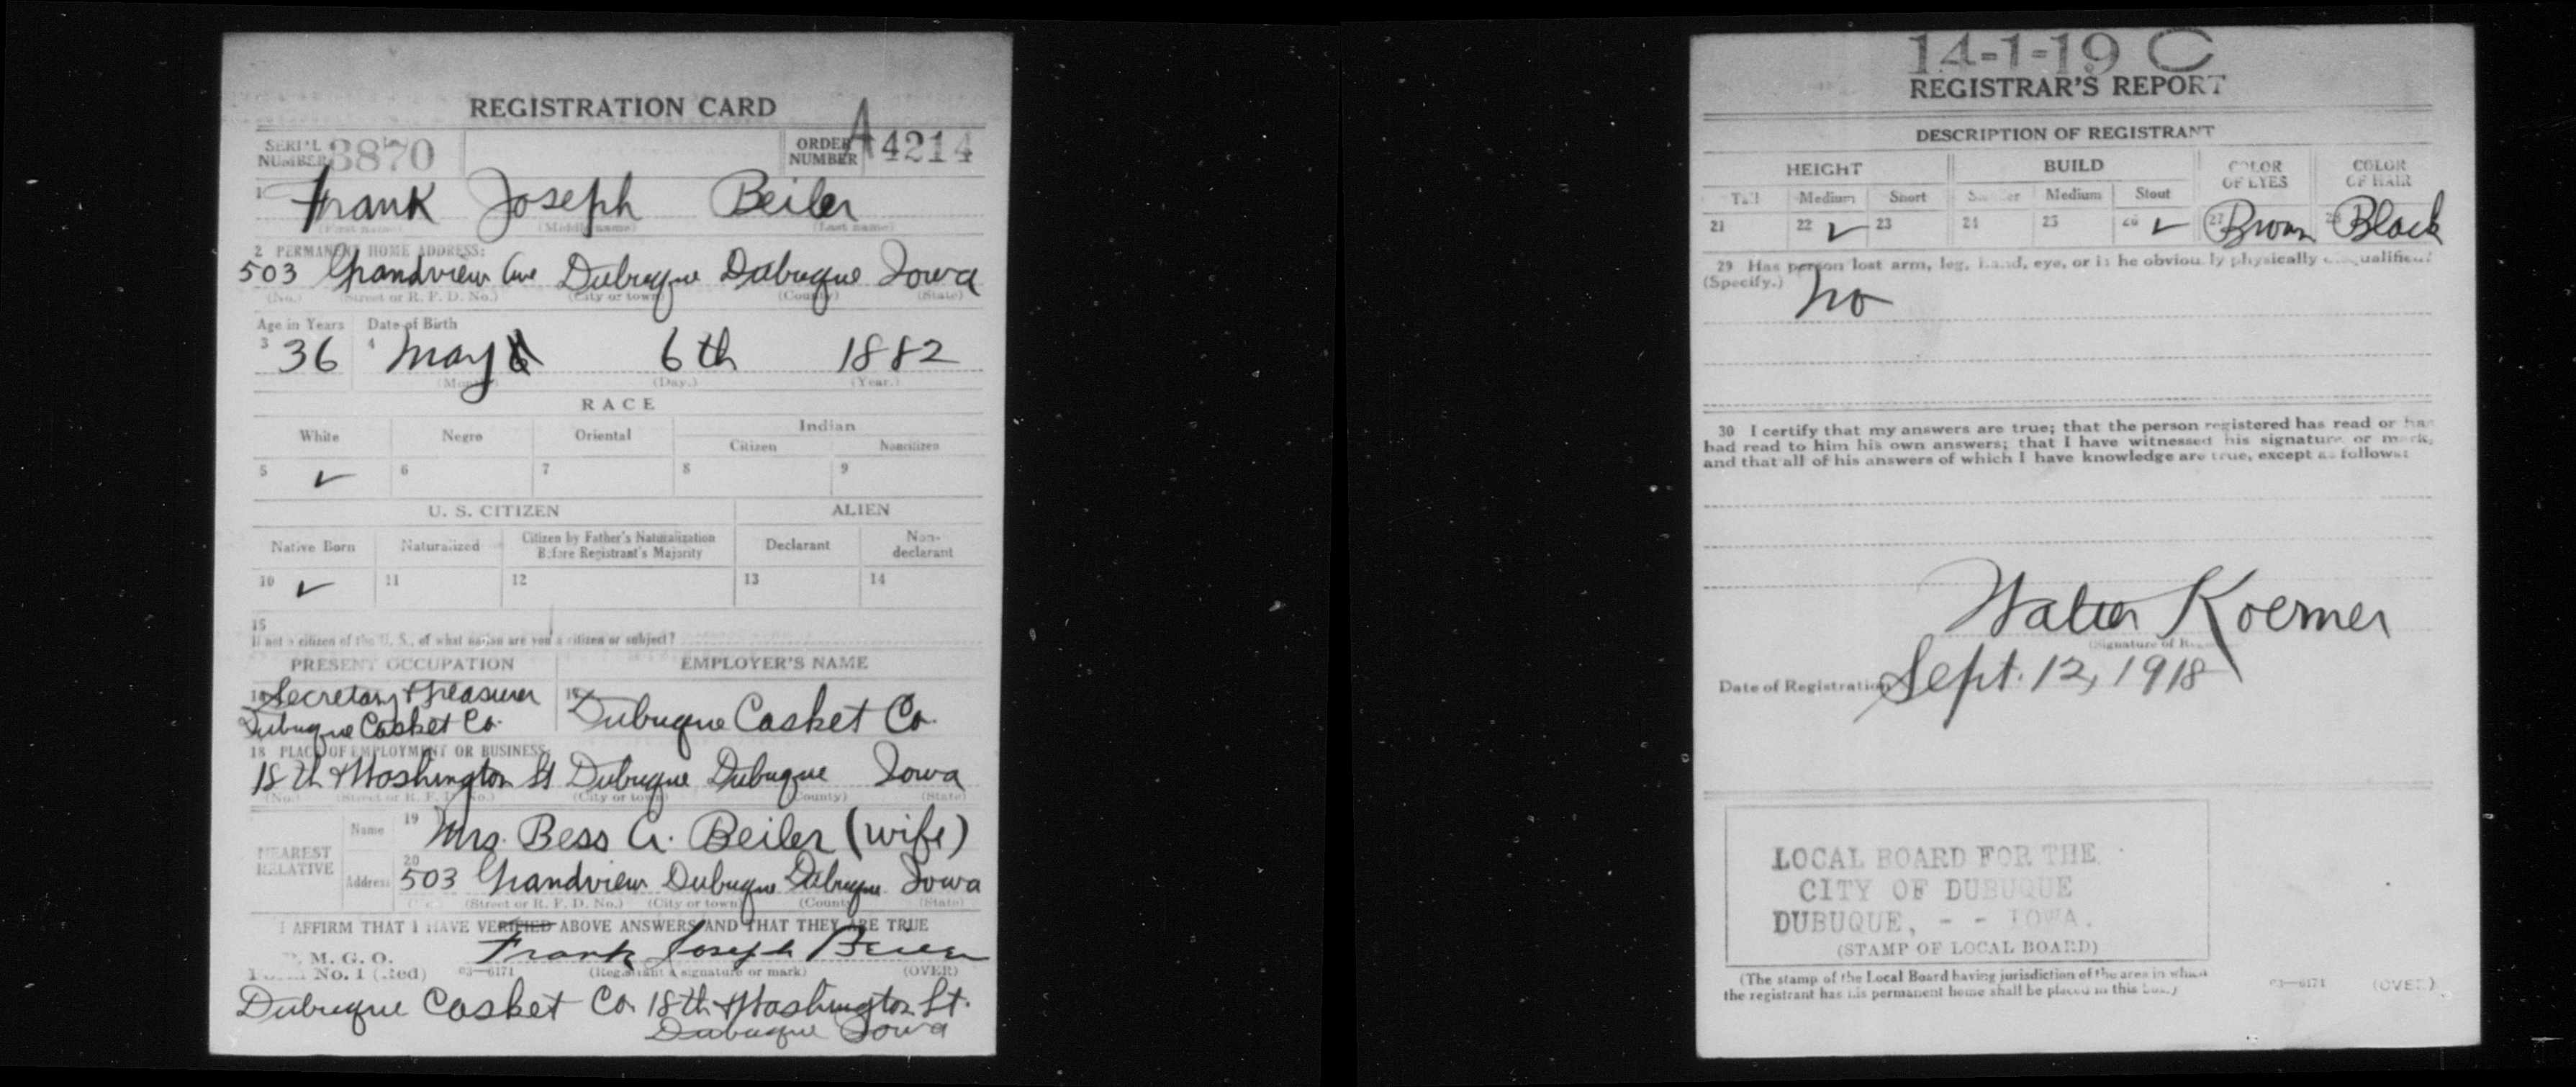 REGISTRATION CARD
SERIAL NUMBER 3870 ORDER NUMBER A 4214
1 Frank Joseph Beiler
(First name) (Middle name) (Last name)
2 PERMANENT HOME ADDRESS:
503 Grandview Ave Dubuque Dubuque Iowa
(No.) (Street or R. F. D. No.) (City or town) (County) (State)
Age in Years Date of Birth
3 36 4 May 6th 1882
(Month) (Day.) (Year.)
RACE
White Negro Oriental Indian
Citizen Noncitizen
5 ✓ 6 7 8 9
U. S. CITIZEN ALIEN
Native Born Naturalized Citizen by Father's Naturalization Before Registrant's Majority Declarant Non-declarant
10 ✓ 11 12 13 14
15
If not a citizen of the U. S., of what nation are you a citizen or subject?
PRESENT OCCUPATION EMPLOYER'S NAME
16 Secretary & Treasurer
Dubuque Casket Co. 17 Dubuque Casket Co.
18 PLACE OF EMPLOYMENT OR BUSINESS:
18th & Washington St Dubuque Dubuque Iowa
(No.) (Street or R. F. D. No.) (City or town) (County) (State)
NEAREST RELATIVE Name 19 Mrs. Bess A. Beiler (wife)
Address 20 503 Grandview Dubuque Dubuque Iowa
(Street or R. F. D. No.) (City or town) (County) (State)
I AFFIRM THAT I HAVE VERIFIED ABOVE ANSWERS AND THAT THEY ARE TRUE
Frank Joseph Beiler
P. M. G. O.
Form No. 1 (Red) 03—6171 (Registrant's signature or mark) (OVER)
Dubuque Casket Co. 18th & Washington St.
Dubuque Iowa
14-1-19 C
REGISTRAR'S REPORT
DESCRIPTION OF REGISTRANT
HEIGHT BUILD COLOR OF EYES COLOR OF HAIR
Tall Medium Short Slender Medium Stout
21 22 ✓ 23 24 25 26 ✓ 27 Brown 28 Black
29 Has person lost arm, leg, hand, eye, or is he obviously physically disqualified?
(Specify.) no
30 I certify that my answers are true; that the person registered has read or has
had read to him his own answers; that I have witnessed his signature or mark,
and that all of his answers of which I have knowledge are true, except as follows:
Walter Koerner
(Signature of Registrar)
Date of Registration Sept. 12, 1918
LOCAL BOARD FOR THE
CITY OF DUBUQUE
DUBUQUE, - - IOWA.
(STAMP OF LOCAL BOARD)
(The stamp of the Local Board having jurisdiction of the area in which
the registrant has his permanent home shall be placed in this box.) 03—6171 (OVER)